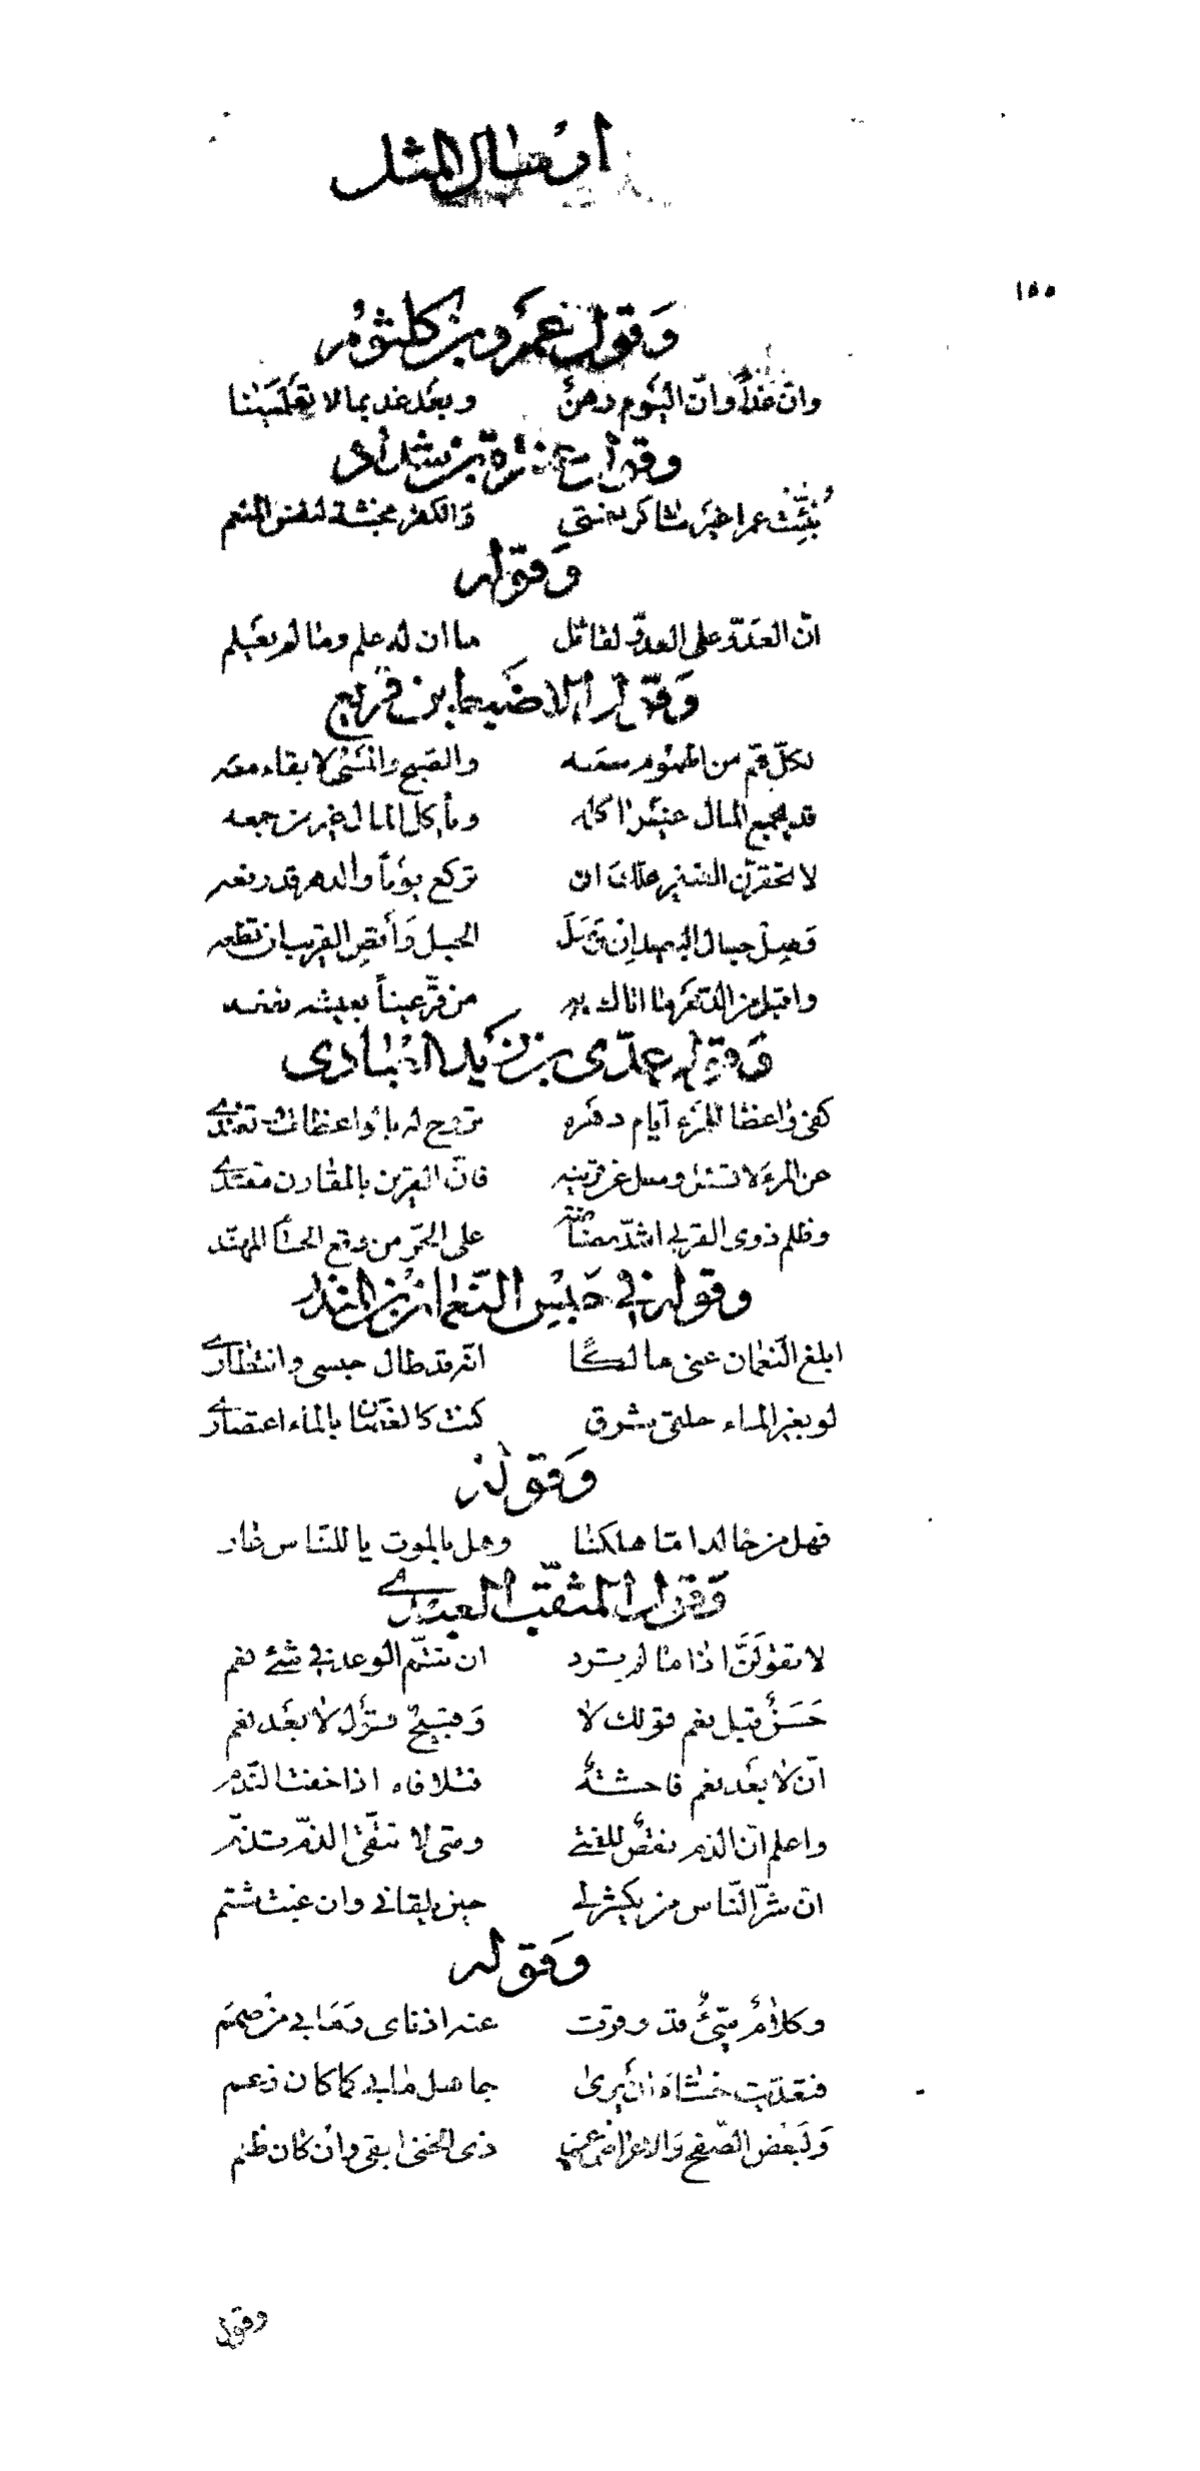 ارسال المثل
١٥٥
وَقول عمرو بن كلثوم
وانّ غداً وانّ اليوم رهنٌ وبعد غد بما لا تعلمينا
وقول عنترة بن شداد
نُبِّئت عمرا غير شاكر نعمتي وَالكفر مخبثة لنفس المنعم
وَقوله
انّ العدوّ على العدوّ لقائل ما ان له علم وما لم يعلم
وَقول الاضبط بن قريع
لكلّ همّ من الهموم سعه والصبح والمسى لا بقاء معه
قد يجمع المال غير اكله ويأكل المال غير من جمعه
لا تحقرن الفقير علّك ان تركع يوماً والدهر قد رفعه
وصل حبال البعيد ان وصل الحبل وَأقص القريب ان قطعه
واقبل من الدهر ما اتاك به من قرّ عيناً بعيشه نفعه
وَقوله عدّي بن زيد العبادي
كفى واعظا للمرء أيام دهره تروح له بالواعظات وتغتدي
عن المرء لا تسئل وسل عن قرينه فانّ القرين بالمقارن مقتدي
وظلم ذوى القربى اشدّ مضاضة على الحرّ من وقع الحسام المهنّد
وقوله في حَبْسِ النّعمان بن المنذر
ابلغ النعمان عنى مالكًا انّه قد طال حبسى وانتظاري
لو بغير الماء حلقى شرق كنت كالغصّان بالماء اعتصاري
وَقوله
فهل من خالد امّا هلكنا وهل بالموت يا للنّاس عار
وَقول المثقّب العبدي
لا تقولَنَّ اذا ما لم ترد ان تتمّ الوعد في شئ نعم
حَسَنٌ قبل نعم قولك لا وَقبيحٌ قول لا بعد نعم
انّ لا بعد نعم فاحشةٌ فبلا فابدء اذا خفت النّدم
واعلم انّ الذم نقصٌ للفتى ومتى لا تتّقى الذمّ تذمّ
انّ شرّ النّاس من يكشر لي حين يلقانى وان غبت شتم
وَقوله
وكلامٌ سيّئٌ قد وقرت عنه اذناى وَمَا بي من صمم
فتعدّيت خشاة ان يرى جاهل ما بى كما كان زعم
وَلبعض الصّفح وَالاعراض عن ذى الخنى ابقى وان كان ظلم
وقول